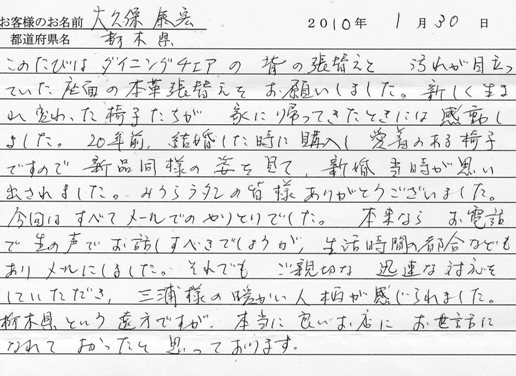 お客様のお名前 大久保 康宏 2010年 1月30日
都道府県名 栃木県
このたびは ダイニングチェアの 背の張替えと 汚れが目立っ
ていた座面の本革張替えを お願いしました。新しく生ま
れ変わった椅子たちが 家に帰ってきたときには 感動し
ました。20年前、結婚した時に購入し 愛着のある椅子
ですので 新品同様の姿を見て、新婚当時が思い
出されました。みうらうタンの皆様ありがとうございました。
今回は すべてメールでの やりとりでした。 本来なら お電話
で 生の声で お話しすべきでしょうが、生活時間の都合なども
あり メールにしました。それでも ご親切な 迅速な対応を
していただき、三浦様の暖かい人柄が感じられました。
栃木県という遠方ですが、本当に良いお店に お世話に
なれて よかったと 思っております。